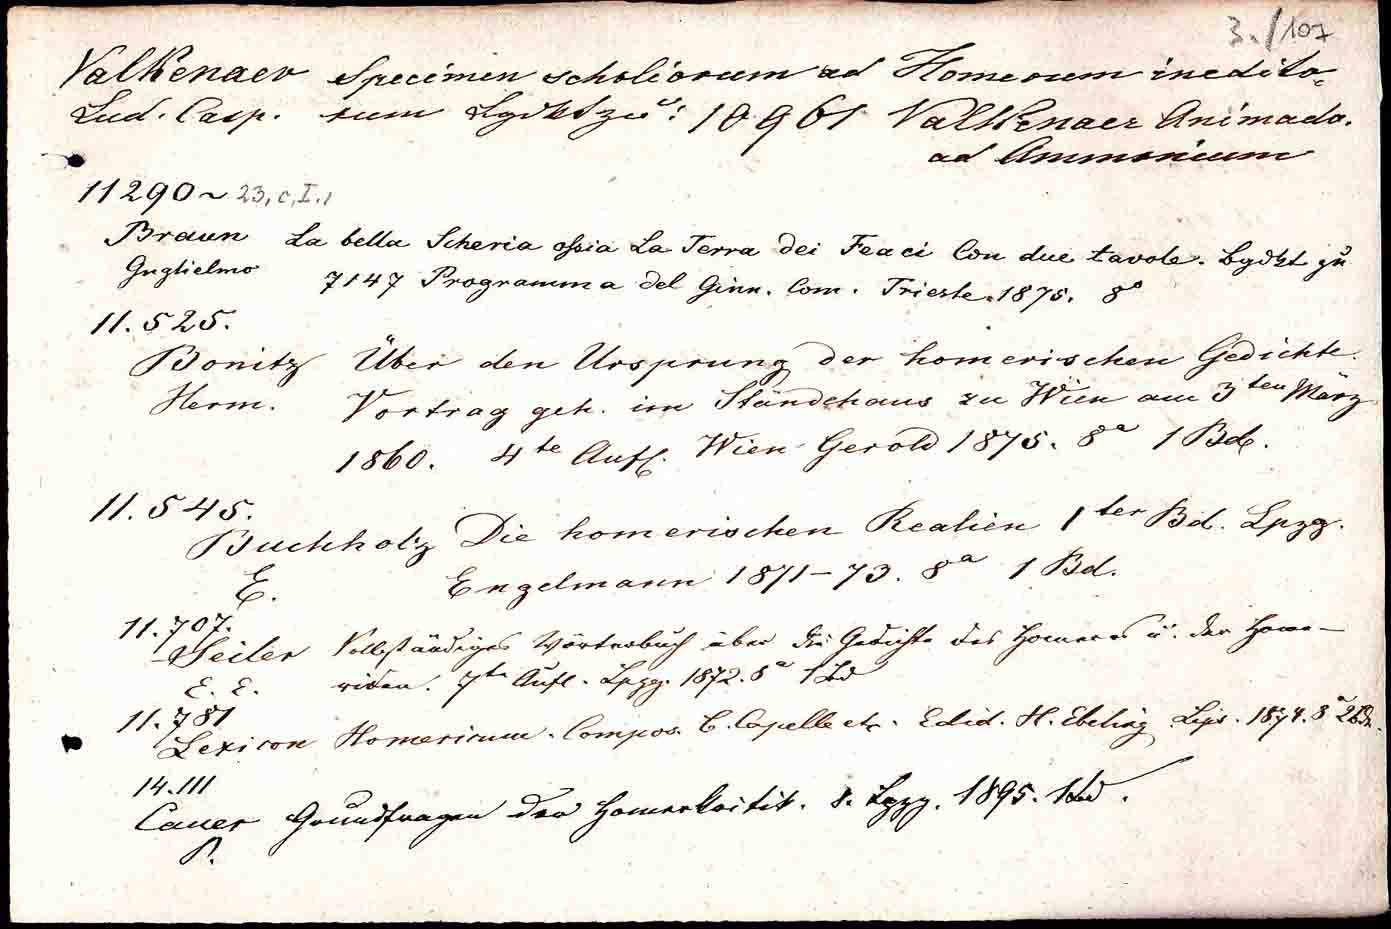 3./107
Valkenaer Specimen scholiorum ad Homerum inedito-
Lud. Casp. rum Lgdktzu: 10961 Valkenaer Animadv.
ad Ammonium
11290~ 23, c, I. 1
Braun La bella Scheria ossia La Terra dei Feaci Con due tavole. bgdkt zu
Guglielmo 7147 Programma del Ginn. Com. Trieste. 1875. 8°
11.525.
Bonitz Über den Ursprung der homerischen Gedichte.
Herm. Vortrag geh. im Ständehaus zu Wien am 3ten März
1860. 4te Aufl. Wien Gerold 1875. 8° 1 Bd.
11.545.
Buchholz Die homerischen Realien 1ter Bd. Lpzg.
E. Engelmann 1871-73. 8° 1 Bd.
11.707.
Seiler Vollständiges Wörterbuch über die Gedichte des Homeros u. der Home-
E. E. riden. 7te Aufl. Lpzg. 1872. 8° 1 Bd
11.781
Lexicon Homericum. Compos. C. Capelle etc. Edid. H. Ebeling Lips. 1874. 8° 2 Bd.
14.111
Cauer Grundfragen der Homerkritik. 8. Lpzg. 1895. 1 Bd.
P.